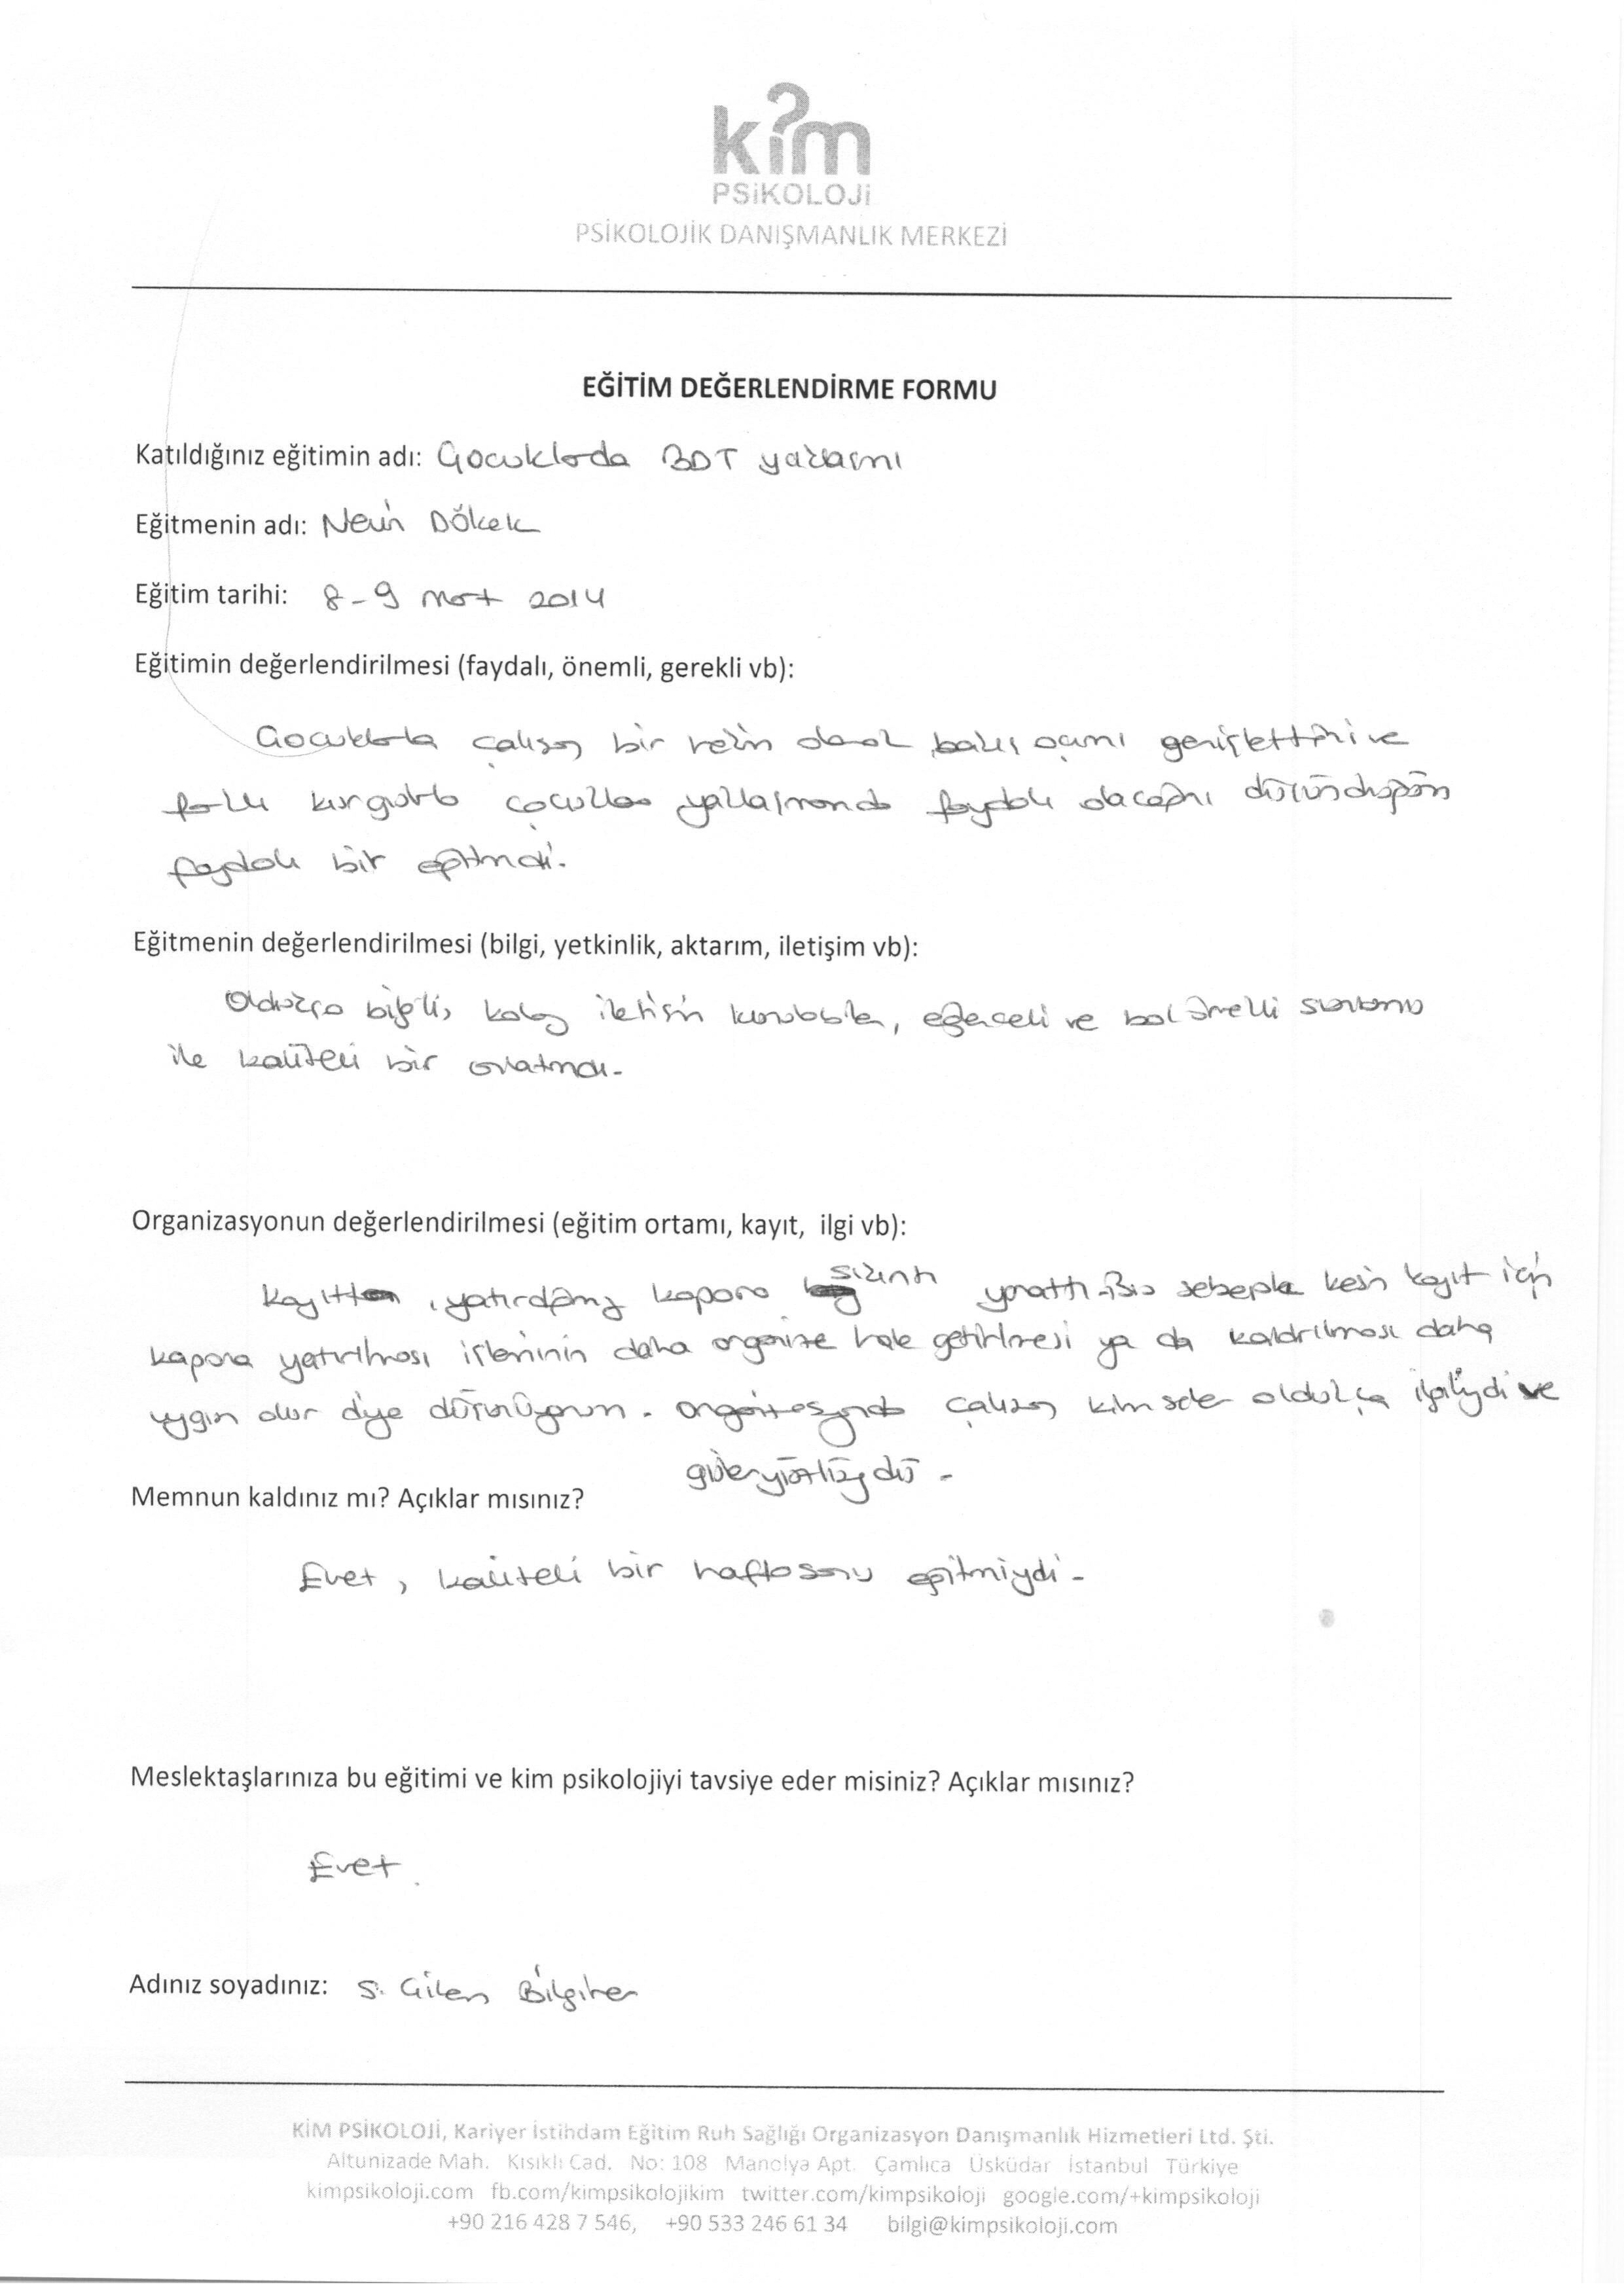 kim
PSiKOLOJi
PSİKOLOJİK DANIŞMANLIK MERKEZİ
EĞİTİM DEĞERLENDİRME FORMU
Katıldığınız eğitimin adı: Çocuklarda BDT yaklaşımı
Eğitmenin adı: Nevin Dölek
Eğitim tarihi: 8-9 Mart 2014
Eğitimin değerlendirilmesi (faydalı, önemli, gerekli vb):
Çocuklarla çalışan bir olarak bakış açımı genişlettiğini ve
farklı çocuklara yaklaşmamda faydalı olacağını düşündüğüm
faydalı bir eğitimdi.
Eğitmenin değerlendirilmesi (bilgi, yetkinlik, aktarım, iletişim vb):
Oldukça bilgili, kolay iletişim kurulabilen, eğlenceli ve bol örnekli sunumu
ile kaliteli bir anlatımdı.
Organizasyonun değerlendirilmesi (eğitim ortamı, kayıt, ilgi vb):
yatırdığımız kapora sıkıntı yarattı. Bu sebeple kesin kayıt için
kapora yatırılması işleminin daha organize hale getirilmesi ya da kaldırılması daha
uygun olur diye düşünüyorum. Organizasyonda çalışan kimseler oldukça ilgiliydi ve
güleryüzlüydü.
Memnun kaldınız mı? Açıklar mısınız?
Evet, kaliteli bir haftasonu eğitimiydi.
Meslektaşlarınıza bu eğitimi ve kim psikolojiyi tavsiye eder misiniz? Açıklar mısınız?
Evet.
Adınız soyadınız: S.
KİM PSİKOLOJİ, Kariyer İstihdam Eğitim Ruh Sağlığı Organizasyon Danışmanlık Hizmetleri Ltd. Şti.
Altunizade Mah. Kısıklı Cad. No: 108 Manolya Apt. Çamlıca Üsküdar İstanbul Türkiye
kimpsikoloji.com fb.com/kimpsikolojikim twitter.com/kimpsikoloji google.com/+kimpsikoloji
+90 216 428 7 546, +90 533 246 61 34 bilgi@kimpsikoloji.com